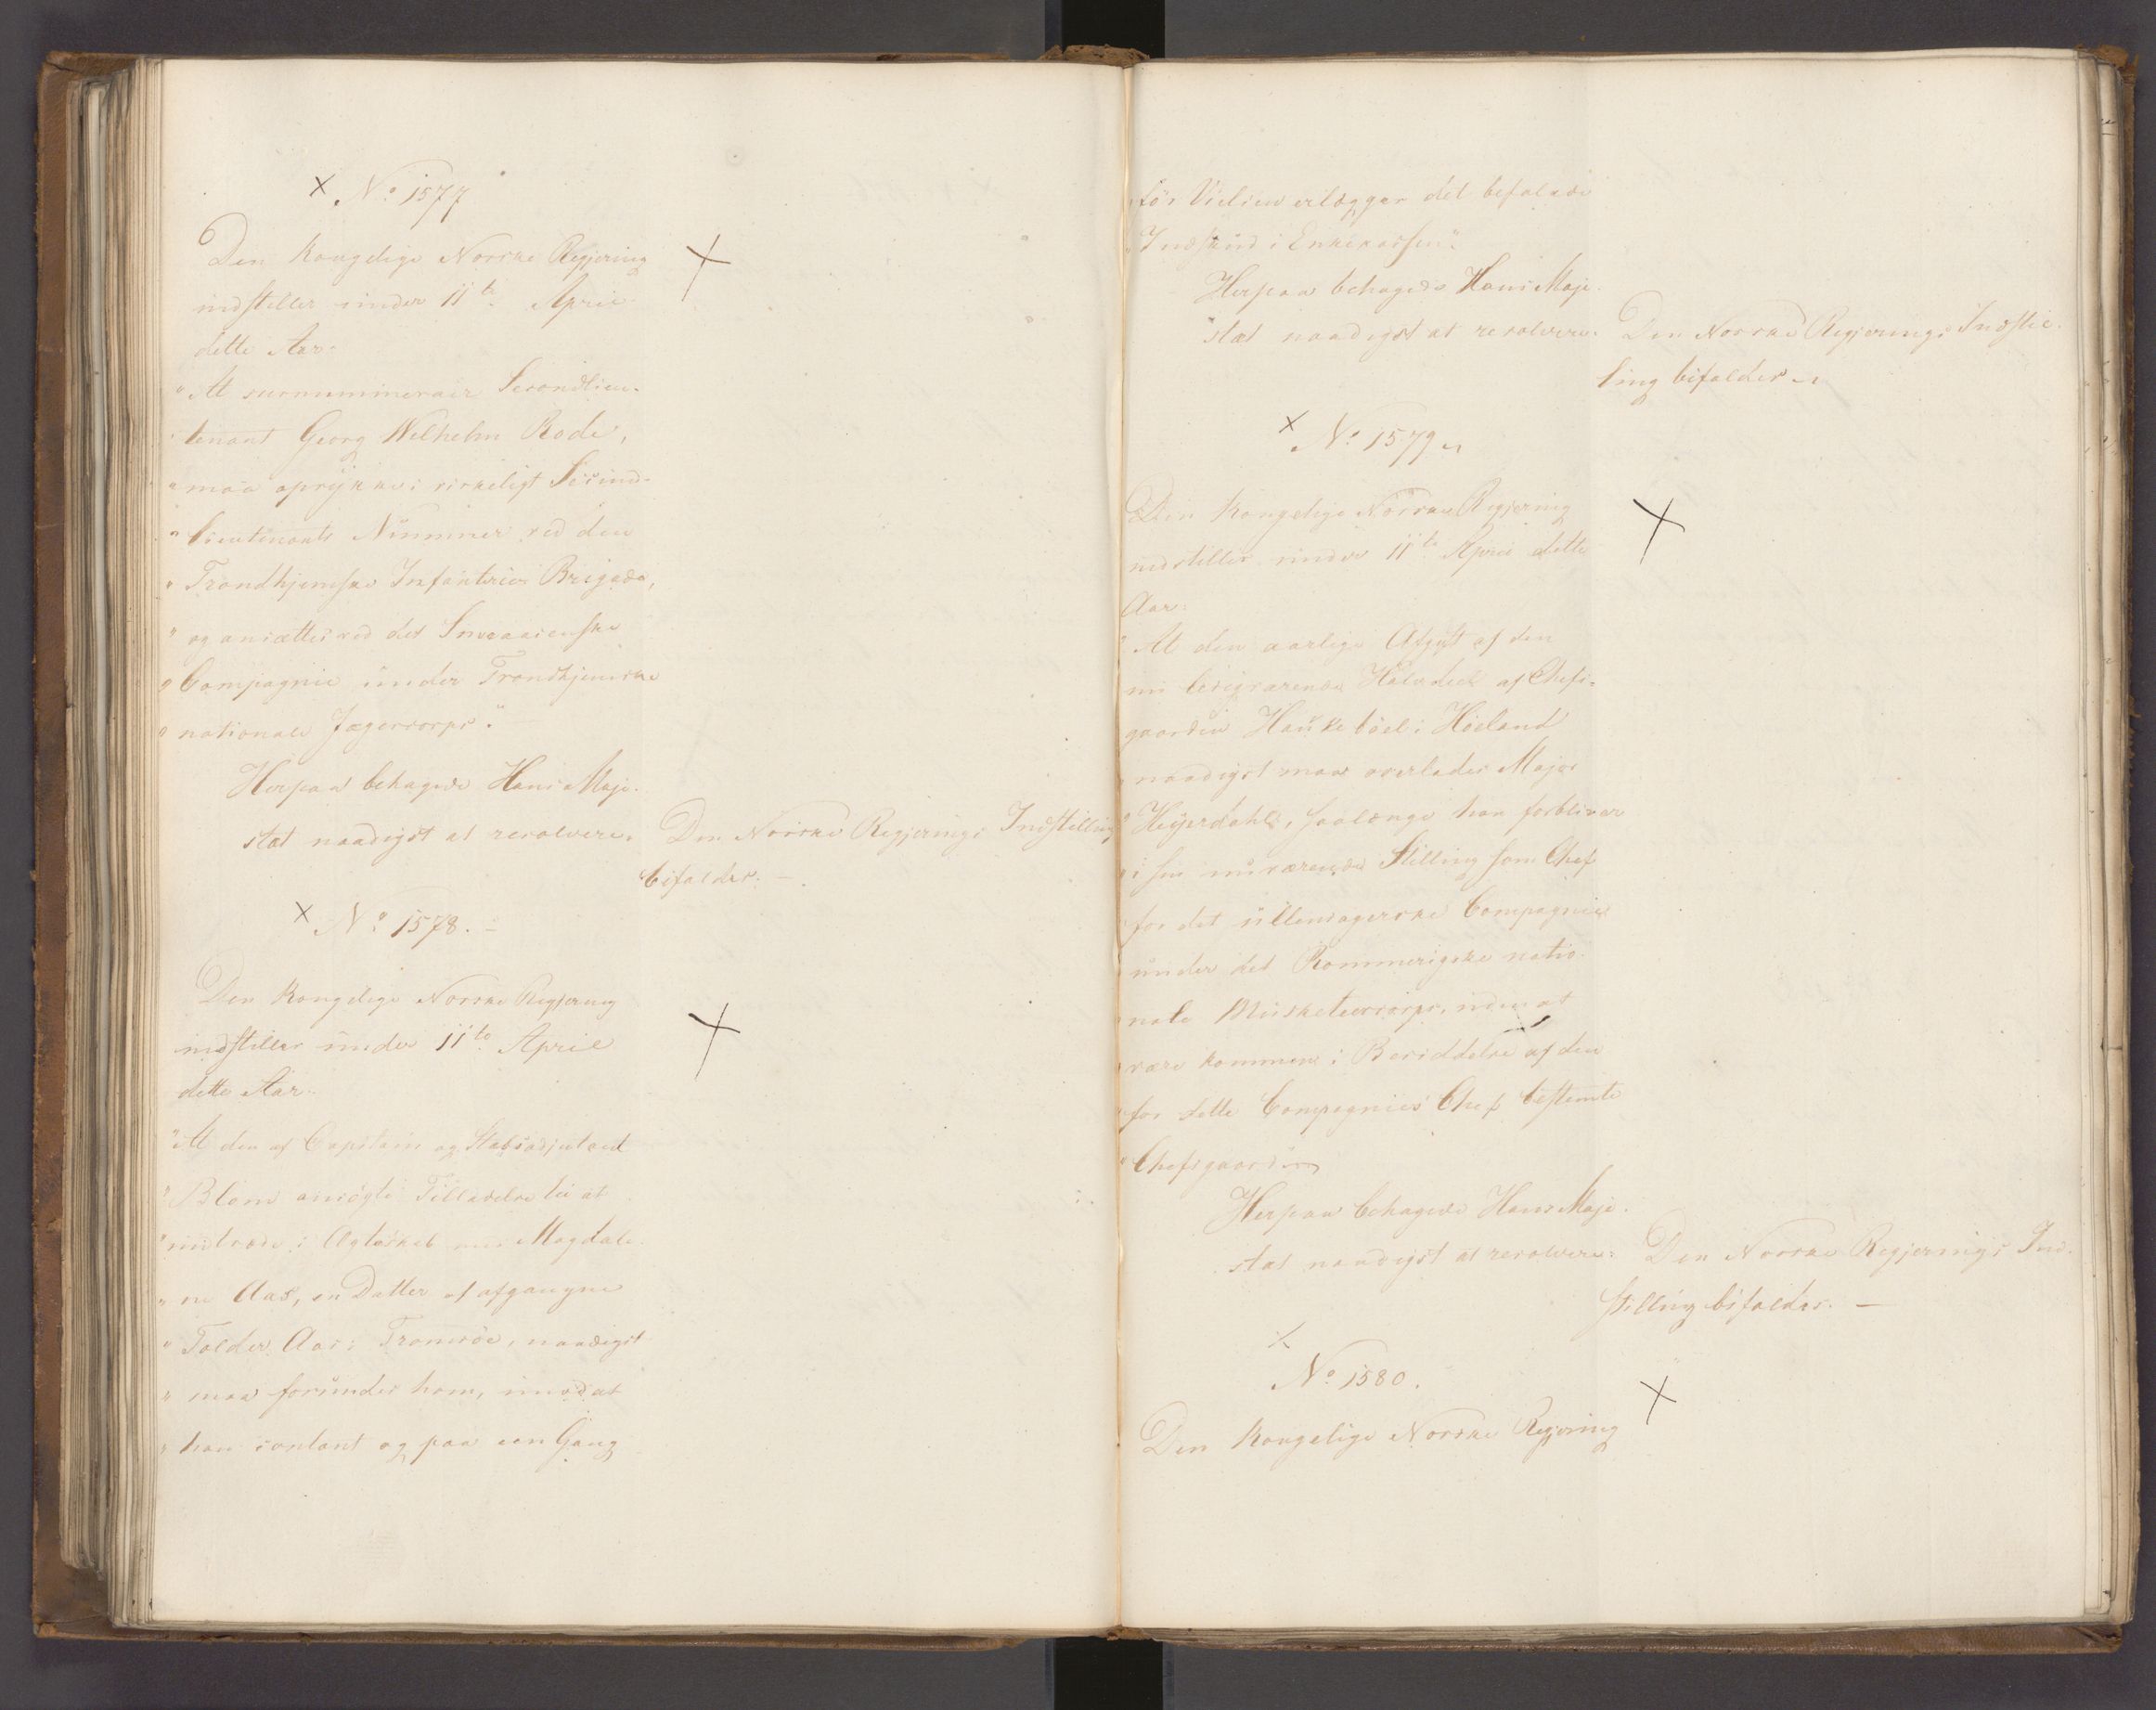 × No 1577
Den Kongelige Norske Regjering
indstiller under 11te April
dette Aar:
"At surnummerair Secondlieu-
"tenant Georg Wilhelm Rode,
"maa oprykke i virkeligt Secund-
"Lieutenants Nummer ved den
"Trondhjemske Infanterie Brigade,
"og ansættes ved det Snaasenske
"Compagnie under Trondhjemske
"nationale Jægercorps".
Herpaa behagede Hans Maje-
stæt naadigst at resolvere: Den Norske Regjerings Indstilling
bifaldes. —
× No 1578. —
Den Kongelige Norske Regjering
indstiller under 11te April
dette Aar:
"At den af Capitain og Stabsadjutant
"Blom ansøgte Tilladelse til at
"indtræde i Ægteskab med Magdale-
"ne Aas, en Datter af afgangne
"Tolder Aas i Tromsöe, naadigst
"maa forundes ham, imod at
"han contant og paa een Gang
"før Vielsen erlægger det befalede
"Indskud i Enkekassen".
Herpaa behagede Hans Maje-
stæt naadigst at resolvere: Den Norske Regjerings Indstil-
ling bifaldes.
× No 1579
Den Kongelige Norske Regjering
indstiller under 11te April dette
Aar:
"At den aarlige Afgift af den
nu ledigværende Halvdeel af Chefs-
gaarden Haukebøel i Höeland
"naadigst maa overlades Major
"Heÿerdahl, saalænge han forbliver
"i sin nuværende Stilling som Chef
"for det Ullensagerske Compagnie
under det Rommerigske natio-
"nale Musketeercorps, uden at
"være kommen i Besiddelse af den
"for dette Compagnies Chef bestemte
"Chefsgaard
Herpaa behagede Hans Maje-
stæt naadigst at resolvere: Den Norske Regjerings Ind-
stilling bifaldes. —
×
No 1580.
Den Kongelige Norske Regjering